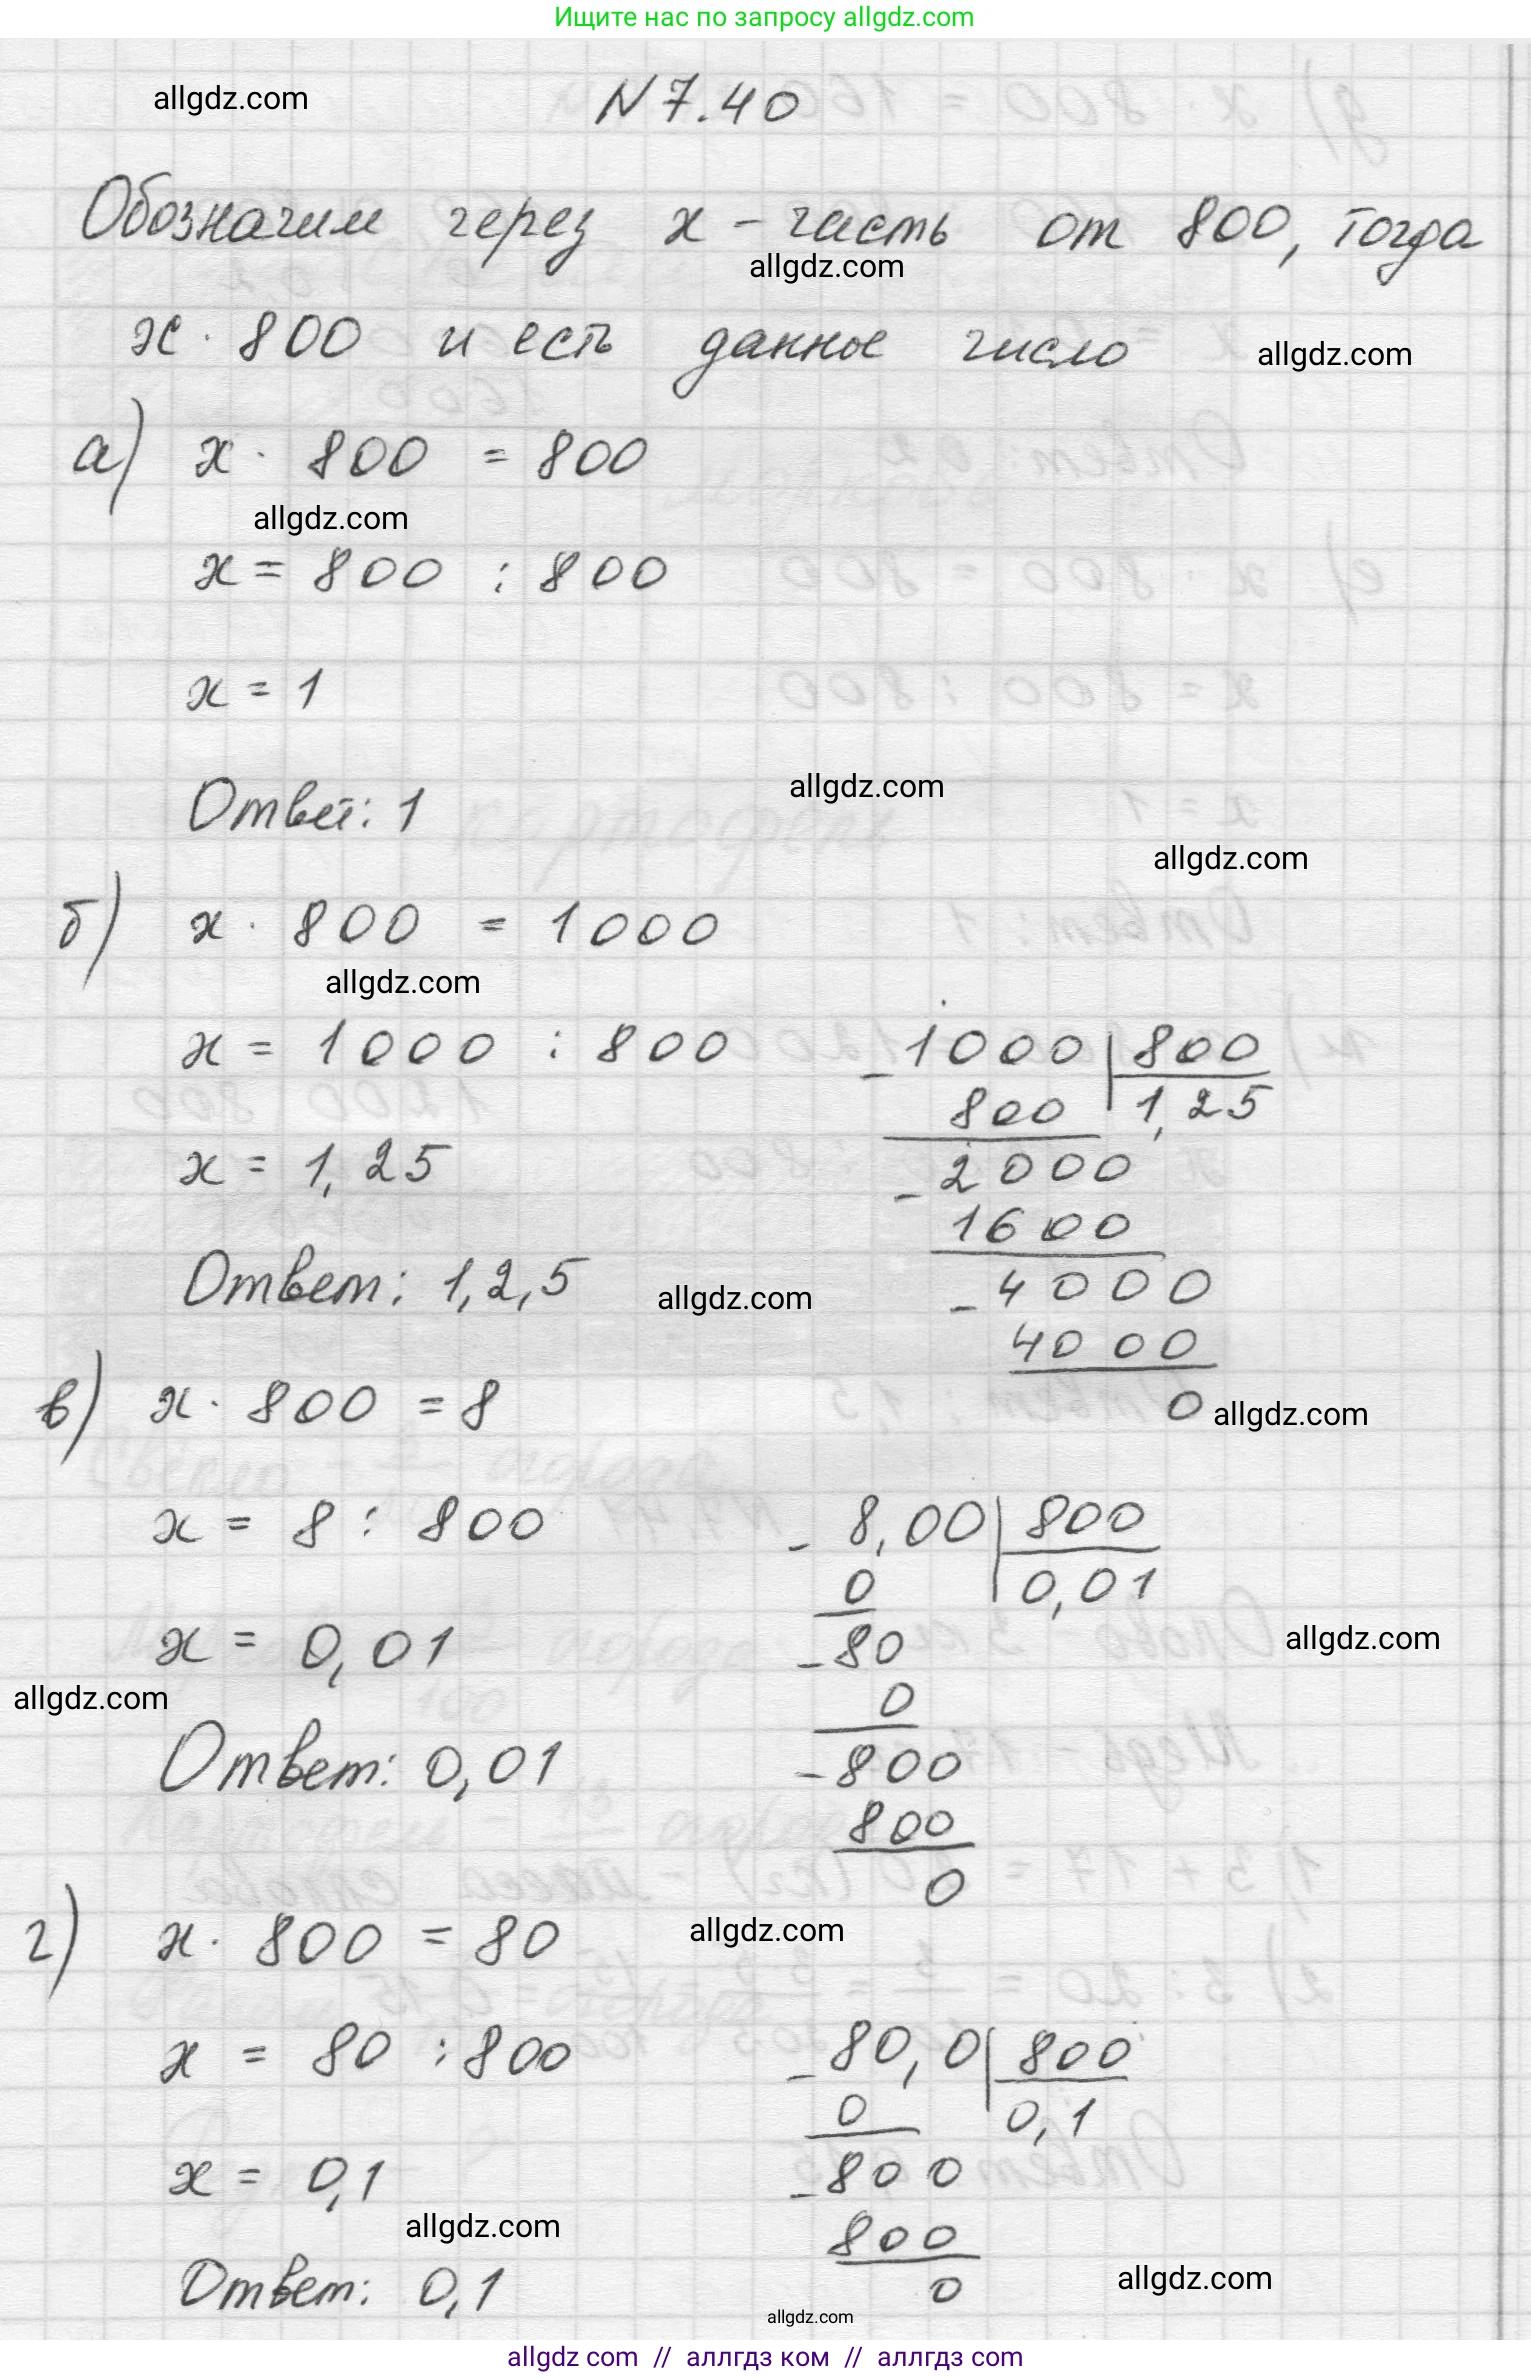 Ищите нас по запросу allgdz.com
allgdz.com
N 7.40
Обозначим через x - часть от 800, тогда
allgdz.com
x · 800 и есть данное число
allgdz.com
а) x · 800 = 800
allgdz.com
x = 800 : 800
x = 1
allgdz.com
Ответ: 1
allgdz.com
б) x · 800 = 1000
allgdz.com
x = 1000 : 800
- 1000 | 800
800 | 1,25
x = 1,25
- 2000
1600
Ответ: 1,2,5
allgdz.com
- 4000
4000
0
allgdz.com
в) x · 800 = 8
x = 8 : 800
- 8,00 | 800
0 | 0,01
x = 0,01
- 80
allgdz.com
allgdz.com
0
Ответ: 0,01
- 800
800
0
г) x · 800 = 80
allgdz.com
x = 80 : 800
- 80,0 | 800
0 | 0,1
x = 0,1
- 800
allgdz.com
800
Ответ: 0,1
0
allgdz.com
allgdz.com
allgdz com // аллгдз ком // аллгдз com